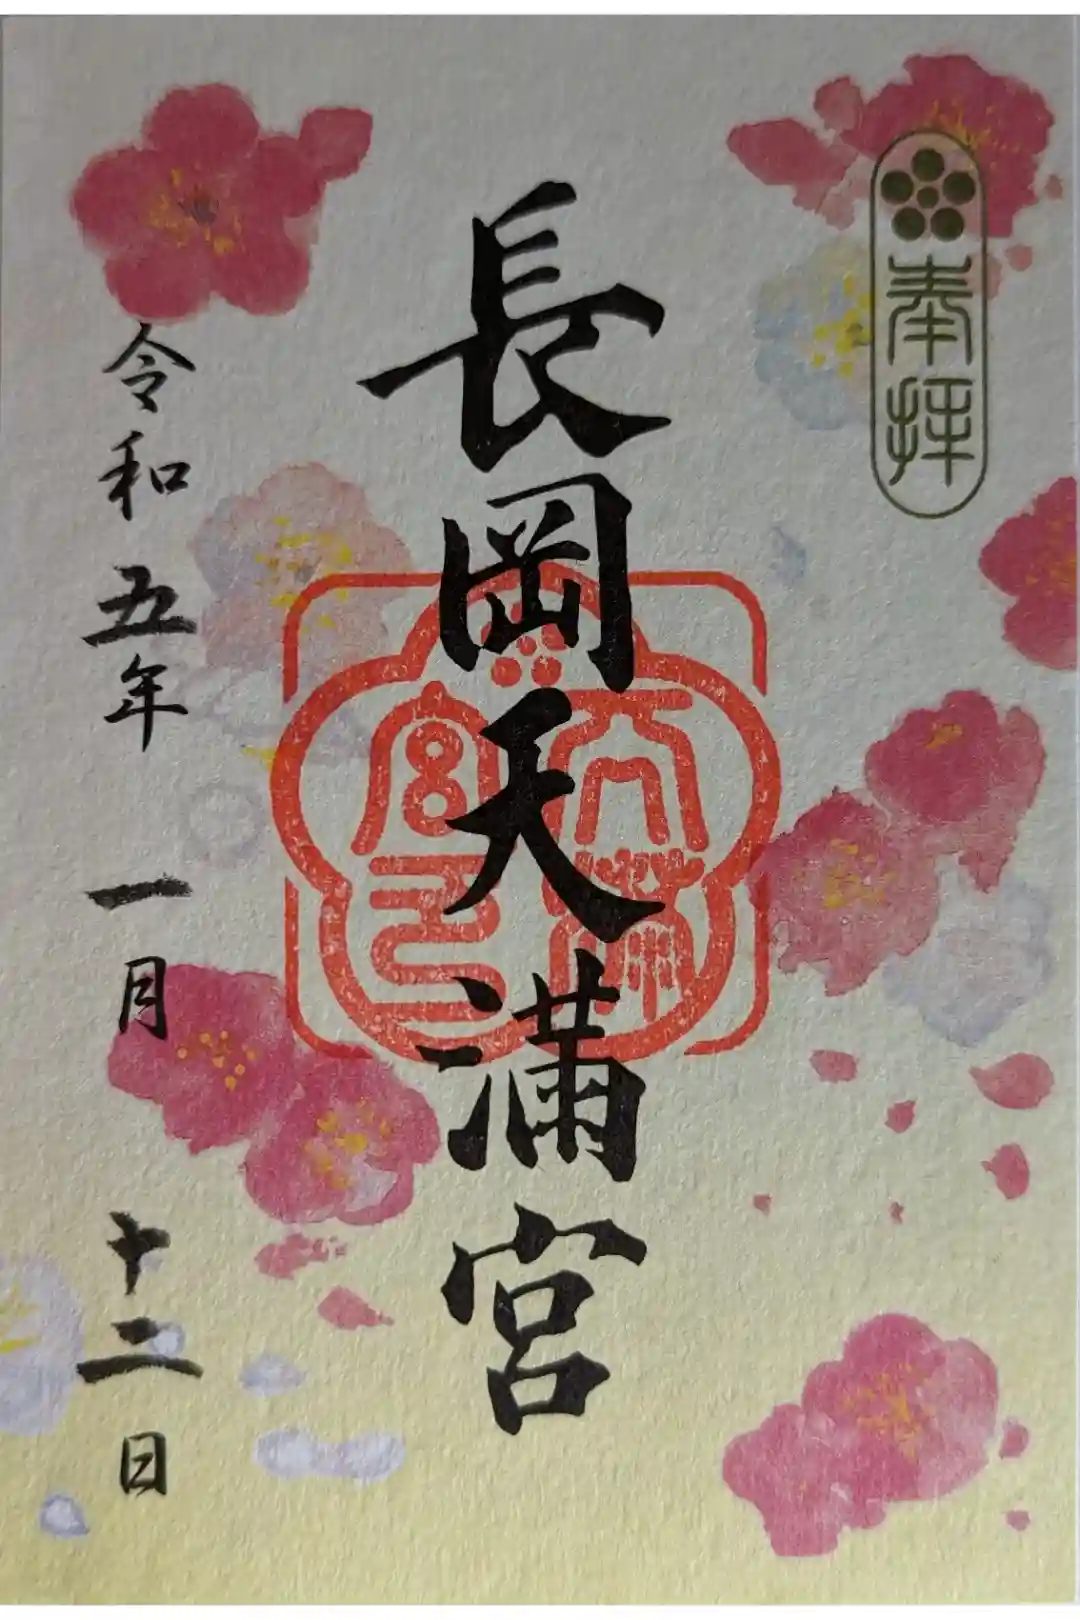 奉拝
長岡天満宮
令和五年 一月 十二日